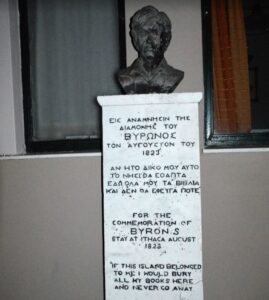 ΕΙΣ ΑΝΑΜΝΗΣΙΝ ΤΗΣ
ΔΙΑΜΟΝΗΣ ΤΟΥ
ΒΥΡΩΝΟΣ
ΤΟΝ ΑΥΓΟΥΣΤΟΝ ΤΟΥ
1823
ΑΝ ΗΤΟ ΔΙΚΟ ΜΟΥ ΑΥΤΟ
ΤΟ ΝΗΣΙ ΘΑ ΕΘΑΠΤΑ
ΕΔΩ ΟΛΑ ΜΟΥ ΤΑ ΒΙΒΛΙΑ
ΚΑΙ ΔΕΝ ΘΑ ΕΦΕΥΓΑ ΠΟΤΕ
FOR THE
COMMEMORATION OF
BYRON'S
STAY AT ITHACA AUGUST
1823
"IF THIS ISLAND BELONGED
TO ME I WOULD BURY
ALL MY BOOKS HERE
AND NEVER GO AWAY